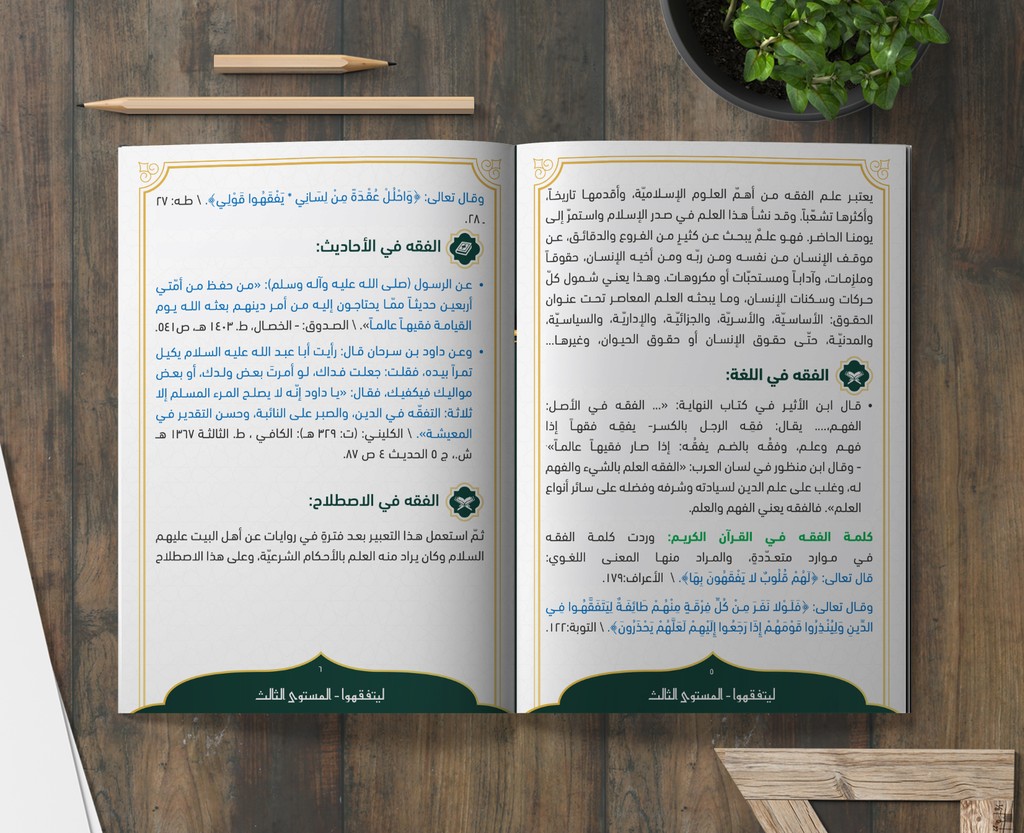 يعتبر علم الفقه من أهمّ العلوم الإسلاميّة، وأقدمها تاريخاً،
وأكثرها تشعّباً. وقد نشأ هذا العلم في صدر الإسلام واستمرّ إلى
يومنا الحاضر. فهو علمٌ يبحث عن كثيرٍ من الفروع والدقائق، عن
موقف الإنسان من نفسه ومن ربّه ومن أخيه الإنسان، حقوقاً
وملزمات، وآداباً ومستحبّات أو مكروهات. وهذا يعني شمول كلّ
حركات وسكنات الإنسان، وما يبحثه العلم المعاصر تحت عنوان
الحقوق: الأساسيّة، والأسريّة، والجزائيّة، والإداريّة، والسياسيّة،
والمدنيّة، حتّى حقوق الإنسان أو حقوق الحيوان، وغيرها...
الفقه في اللغة:
• قال ابن الأثير في كتاب النهاية: «... الفقه في الأصل:
الفهم،.... يقال: فقِه الرجل بالكسر- يفقِه فقهاً إذا
فهم وعلم، وفقُه بالضم يفقُه: إذا صار فقيهاً عالماً»
- وقال ابن منظور في لسان العرب: «الفقه العلم بالشيء والفهم
له، وغلب على علم الدين لسيادته وشرفه وفضله على سائر أنواع
العلم». فالفقه يعني الفهم والعلم.
كلمة الفقه في القرآن الكريم: وردت كلمة الفقه
في موارد متعدّدةٍ، والمراد منها المعنى اللغوي:
قال تعالى: ﴿لَهُمْ قُلُوبٌ لا يَفْقَهُونَ بِهَا﴾. \ الأعراف:١٧٩.
وقال تعالى: ﴿فَلَوْلا نَفَرَ مِنْ كُلِّ فِرْقَةٍ مِنْهُمْ طَائِفَةٌ لِيَتَفَقَّهُوا فِي
الدِّينِ وَلِيُنْذِرُوا قَوْمَهُمْ إِذَا رَجَعُوا إِلَيْهِمْ لَعَلَّهُمْ يَحْذَرُونَ﴾. \ التوبة:١٢٢.
٥
ليتفقهوا - المستوى الثالث
وقال تعالى: ﴿وَاحْلُلْ عُقْدَةً مِنْ لِسَانِي * يَفْقَهُوا قَوْلِي﴾. \ طه: ٢٧
ـ ٢٨.
الفقه في الأحاديث:
• عن الرسول (صلى الله عليه وآله وسلم): «من حفظ من أمّتي
أربعين حديثاً ممّا يحتاجون إليه من أمر دينهم بعثه الله يوم
القيامة فقيهاً عالماً». \ الصدوق: - الخصال، ط. ١٤٠٣ هـ، ص٥٤١.
• وعن داود بن سرحان قال: رأيت أبا عبد الله عليه السلام يكيل
تمراً بيده، فقلت: جعلت فداك، لو أمرتَ بعض ولدك، أو بعض
مواليك فيكفيك، فقال: «يا داود إنّه لا يصلح المرء المسلم إلا
ثلاثة: التفقّه في الدين، والصبر على النائبة، وحسن التقدير في
المعيشة». \ الكليني: (ت: ٣٢٩ هـ): الكافي ، ط. الثالثة ١٣٦٧ هـ
ش.، ج ٥ الحديث ٤ ص ٨٧.
الفقه في الاصطلاح:
ثمّ استعمل هذا التعبير بعد فترةٍ في روايات عن أهل البيت عليهم
السلام وكان يراد منه العلم بالأحكام الشرعيّة، وعلى هذا الاصطلاح
٦
ليتفقهوا - المستوى الثالث